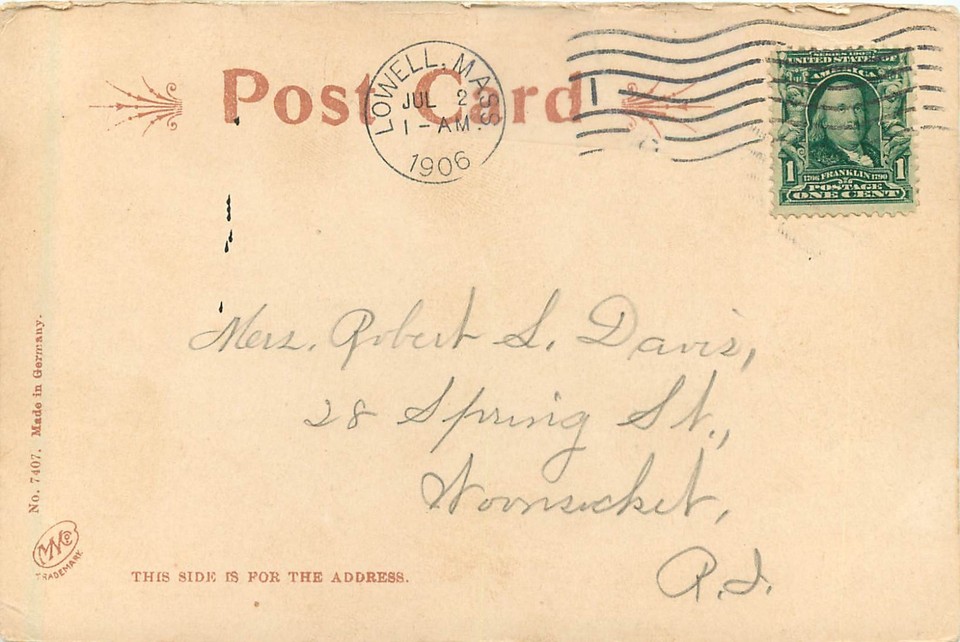 Post Card
LOWELL, MASS
JUL 2
1-AM.
1906
1
SERIES 1902
UNITED STATES OF
AMERICA
1 1
1706 FRANKLIN 1790
POSTAGE
ONE CENT
Mrs. Robert S. Davis,
28 Spring St.,
Woonsocket,
R.I.
No. 7407. Made in Germany.
TRADEMARK
THIS SIDE IS FOR THE ADDRESS.